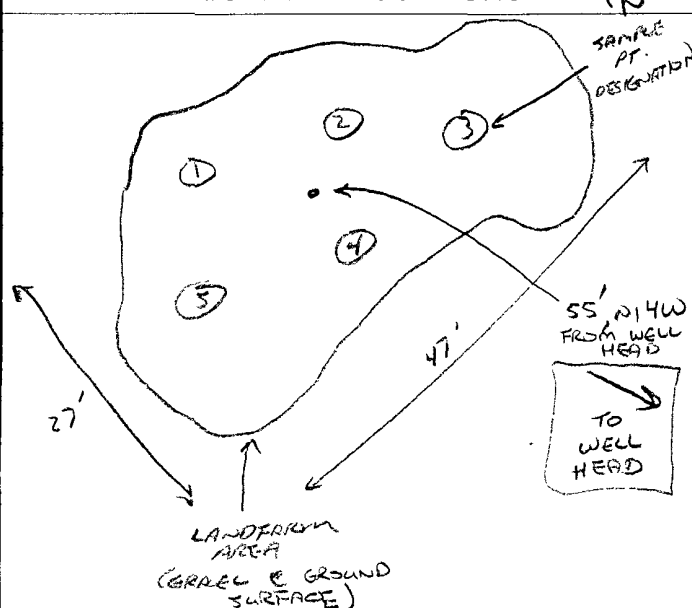 N
SAMPLE
PT.
DESIGNATION
2
3
1
4
5
55', N14W
FROM WELL
HEAD
47'
27'
TO
WELL
HEAD
LANDFARM
AREA
(GRAVEL @ GROUND
SURFACE)